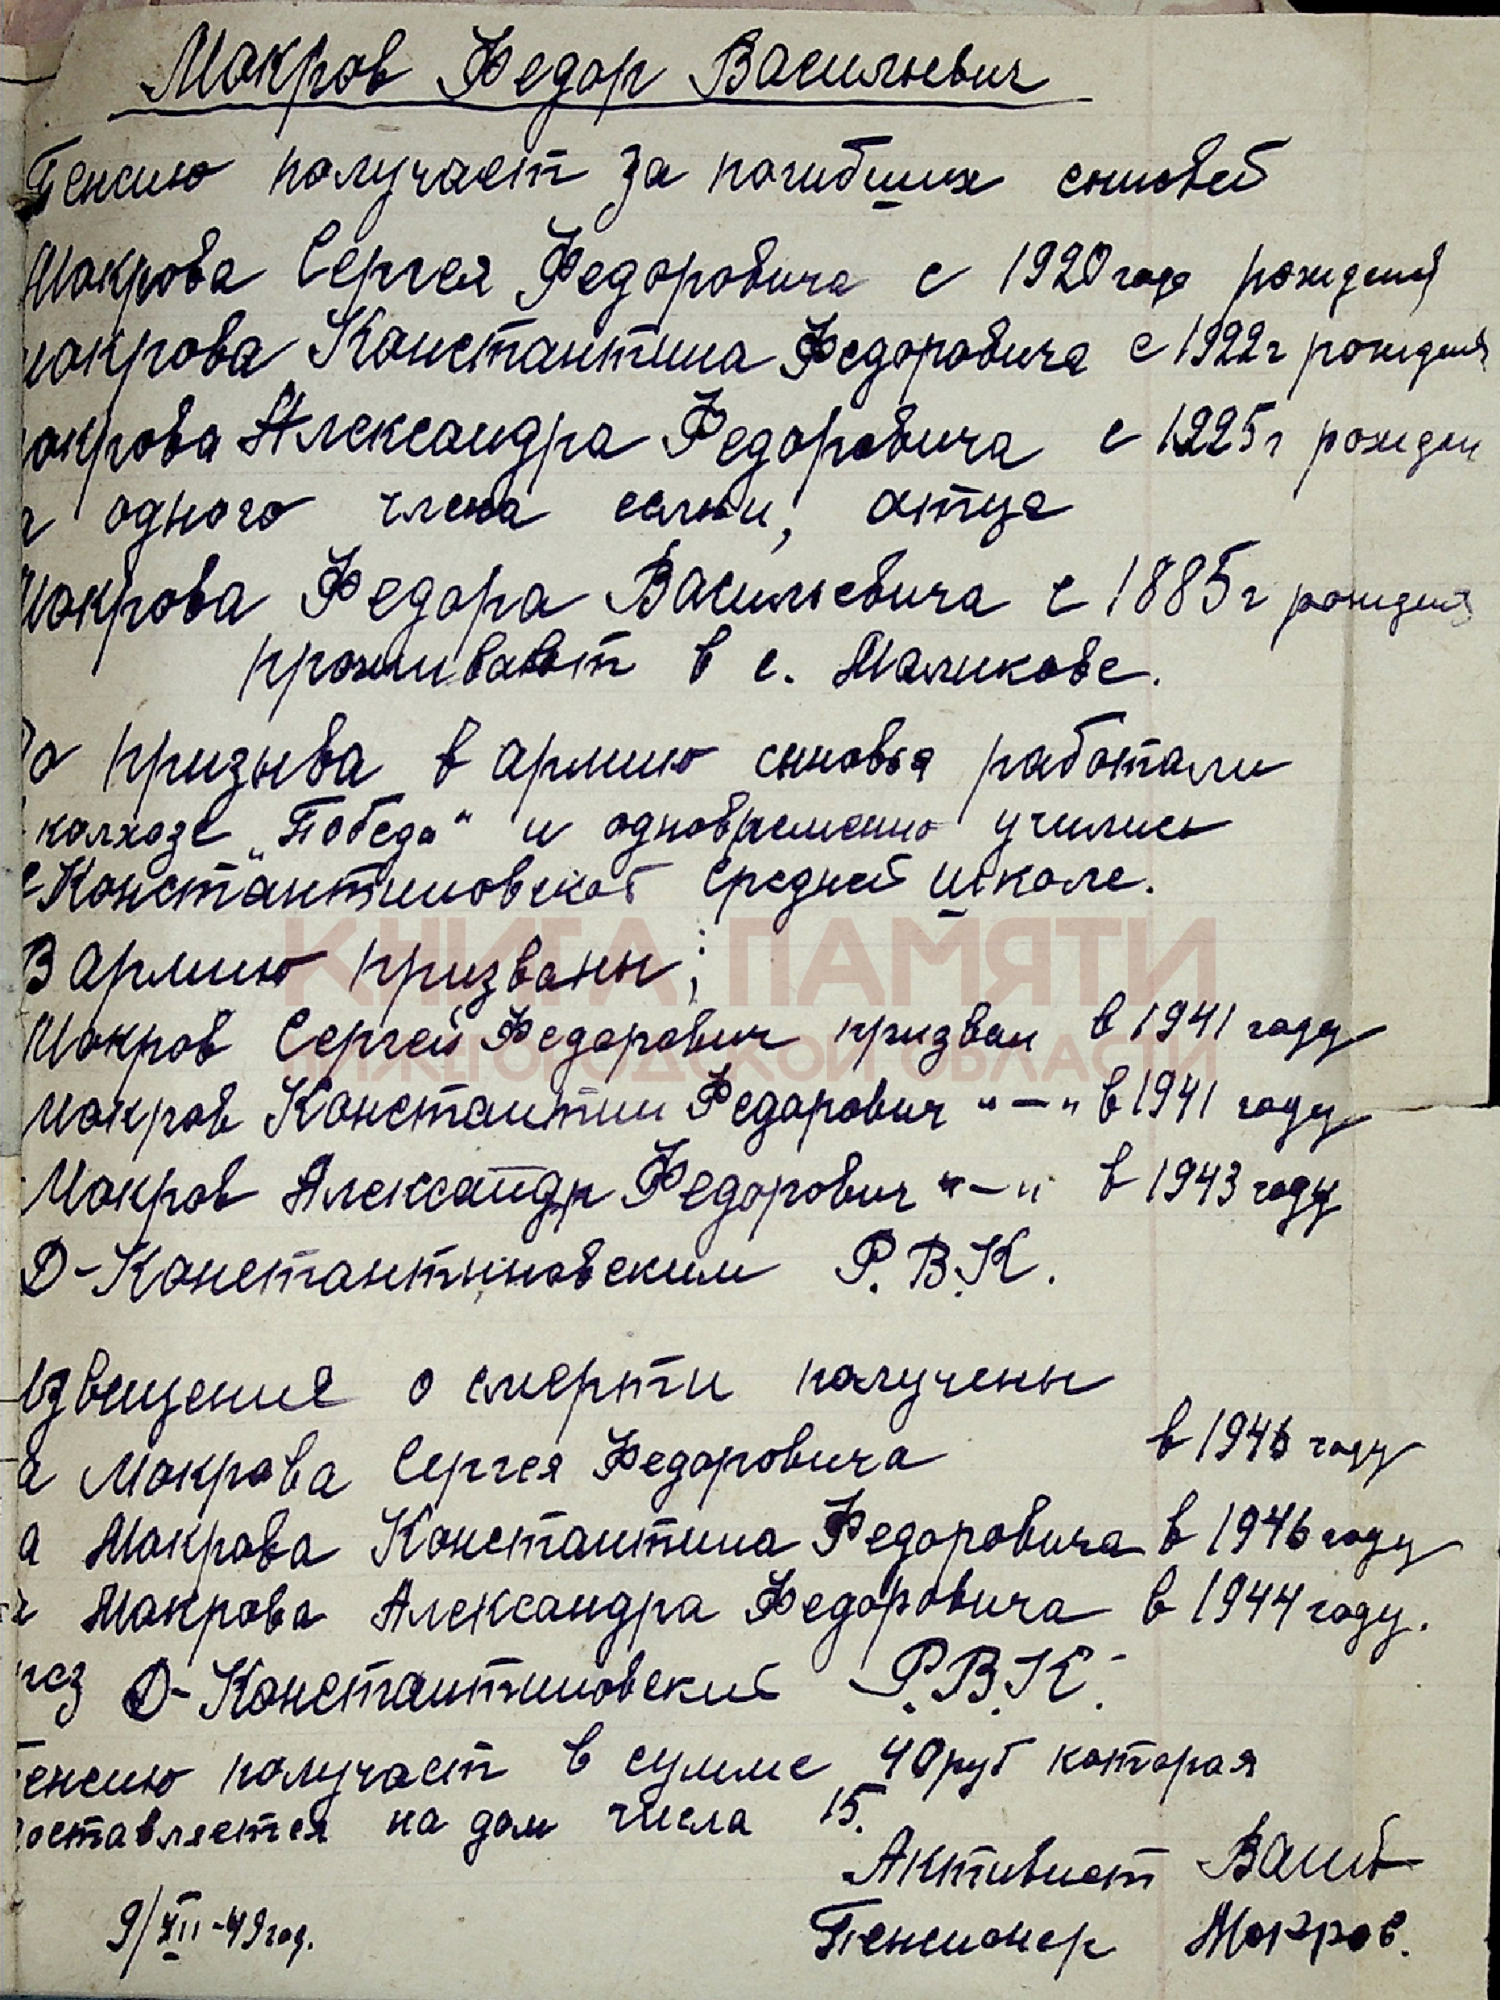 Мокров Федор Васильевич
Пенсию получает за погибших сыновей
Мокрова Сергея Федоровича с 1920 года рождения
Мокрова Константина Федоровича с 1922 г рождения
мокрова Александра Федоровича с 1925 г рожден
одного члена семьи, отца
Мокрова Федора Васильевича с 1885 г рождения
проживают в с. Маликове.
До призыва в армию сыновья работали
колхозе „Победа" и одновременно учились
Константиновской средней школе.
В армию призваны;
КНИГА ПАМЯТИ
Мокров Сергей Федорович призван в 1941 году
НИЖЕГОРОДСКОЙ ОБЛАСТИ
Мокров Константин Федорович "—" в 1941 году
Мокров Александр Федорович "—" в 1943 году
Д-Константиновским Р.В.К.
извещение о смерти получены
а Мокрова Сергея Федоровича в 1946 году
а Мокрова Константина Федоровича в 1946 году
Мокрова Александра Федоровича в 1944 году.
рез Д-Константиновский Р.В.К.
пенсию получает в сумме 40 руб которая
доставляется на дом числа 15.
Активист
9/XII-49 год.
Пенсионер Мокров.